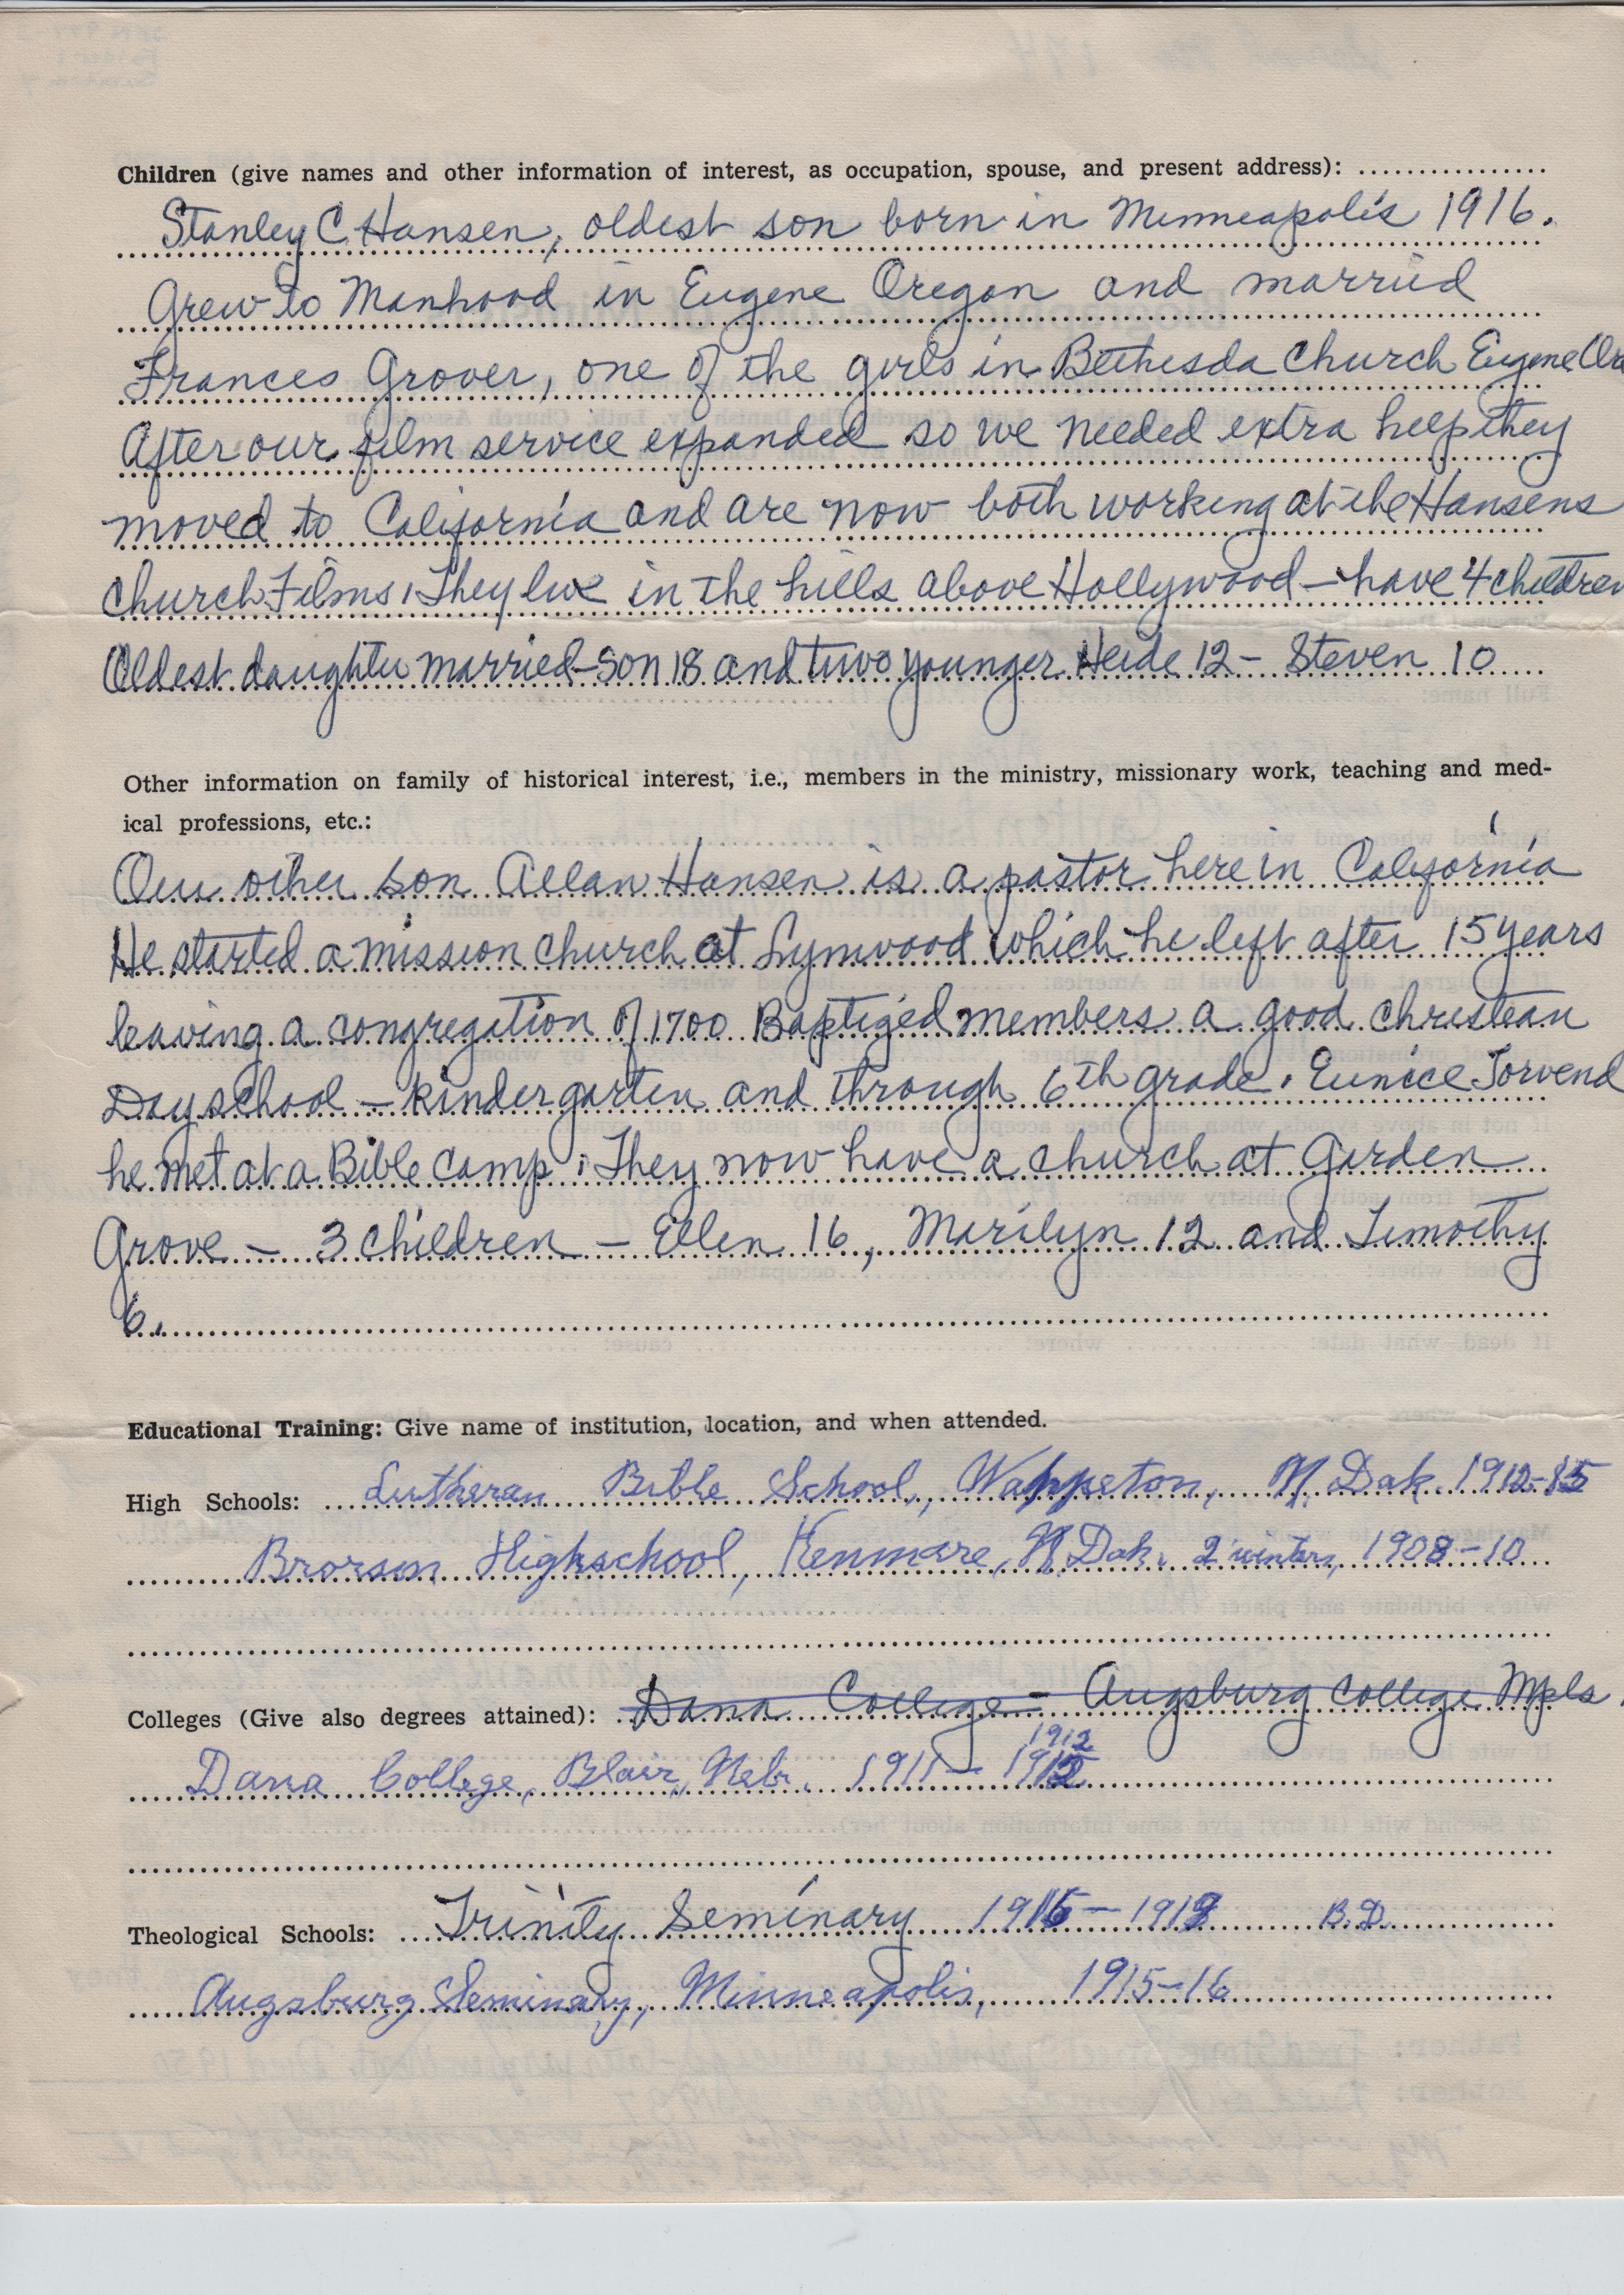 Children (give names and other information of interest, as occupation, spouse, and present address): ................
Stanley C. Hansen, oldest son born in Minneapolis 1916.
Grew to Manhood in Eugene Oregon and married
Frances Grover, one of the girls in Bethesda Church Eugene Ore
After our film service expanded so we needed extra help they
moved to California and are now both working at the Hansens
Church Films. They live in the hills above Hollywood – have 4 children
Oldest daughter married – son 18 and two younger Heide 12 – Steven 10
Other information on family of historical interest, i.e., members in the ministry, missionary work, teaching and med-
ical professions, etc.:
Our other son Allan Hansen is a pastor here in California
He started a mission church at Lynwood which he left after 15 years
leaving a congregation of 1700 Baptized members a good christian
Day school – kindergarten and through 6th grade. Eunice Torvend
he met at a Bible camp. They now have a church at Garden
Grove – 3 children – Ellen 16, Marilyn 12 and Timothy
6.
Educational Training: Give name of institution, location, and when attended.
High Schools: Lutheran Bible School, Wahpeton, N. Dak. 1912-15
Brorson Highschool, Kenmare, N. Dak. 2 winters, 1908-10
Colleges (Give also degrees attained): Dana College – Augsburg College Mpls.
1912
Dana College, Blair, Nebr. 1911 – 1912
Theological Schools: Trinity Seminary 1916 – 1919 B.D.
Augsburg Seminary, Minneapolis, 1915-16